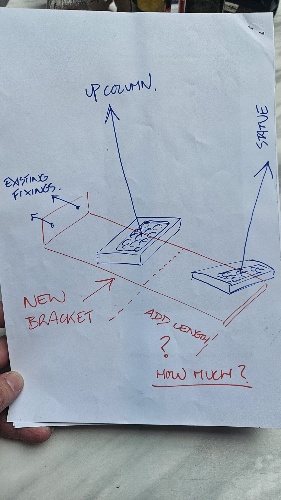 UP COLUMN.
STATUE
EXISTING
FIXINGS.
NEW
BRACKET
ADD LENGTH
?
HOW MUCH?